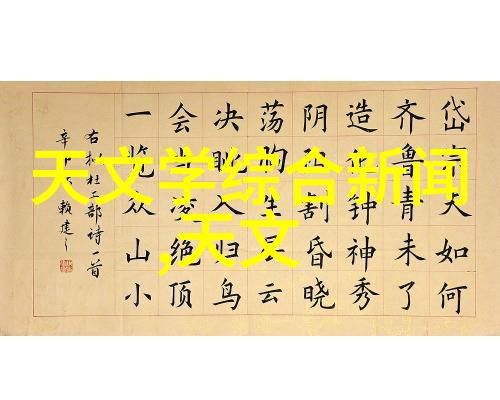 天文学综合新闻
,天文
岱宗夫如何
齐鲁青未了
造化钟神秀
阴阳割昏晓
荡胸生层云
决眦入归鸟
会当凌绝顶
一览众山小
右抄杜工部诗一首
辛 赖建